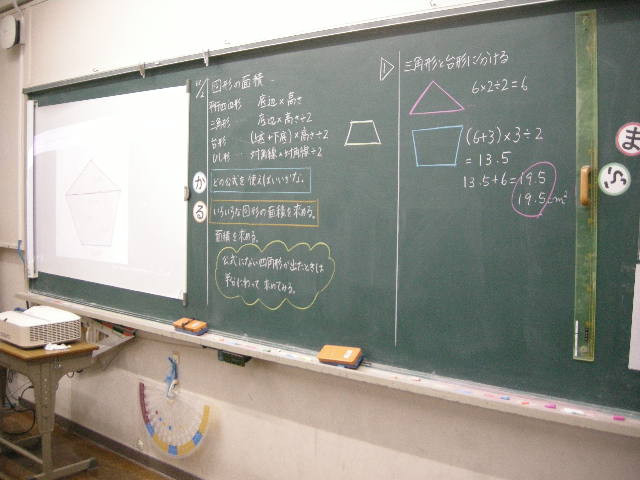 図形の面積
平行四辺形 底辺×高さ
三角形 底辺×高さ÷2
台形 (上底+下底)×高さ÷2
ひし形 対角線×対角線÷2
か
どの公式を使えばいいかな。
る
いろいろな図形の面積を求める。
面積を求める。
公式にない四角形が出たときは
求めてみる。
1
三角形と台形に分ける
6×2÷2=6
(6+3)×3÷2
=13.5
13.5+6=19.5
19.5cm²
ま